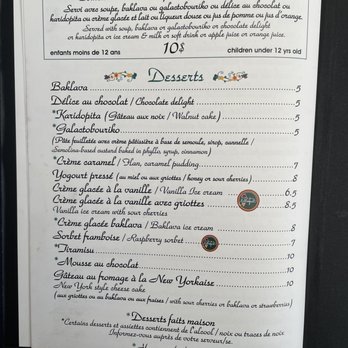 Servi avec soupe, baklava ou galactobouriko ou délice au chocolat ou
karidopita ou crème glacée et lait ou liqueur douce ou jus de pomme ou jus d'orange.
Served with soup, baklava or galactobouriko or chocolate delight
or karidopita or ice cream & milk or soft drink or apple juice or orange juice.
enfants moins de 12 ans 10$ children under 12 yrs old
Desserts
Baklava 5
Délice au chocolat / Chocolate delight 5
*Karidopita (Gâteau aux noix / Walnut cake) 5
*Galactobouriko 5
(Pâte feuilletée avec crème pâtissière à base de semoule, sirop, cannelle /
Semolina-based custard baked in phyllo, syrup, cinnamon)
*Crème caramel / Flan, caramel pudding 7
Yogourt pressé (au miel ou aux griottes / honey or sour cherries) 8
Crème glacée à la vanille / Vanilla Ice cream 6.5
Crème glacée à la vanille avec griottes 8.5
Vanilla ice cream with sour cherries
*Crème glacée baklava / Baklava ice cream 8
Sorbet framboise / Raspberry sorbet 7
*Tiramisu 10
*Mousse au chocolat 10
Gâteau au fromage à la New Yorkaise 10
New York style cheese cake
(aux griottes ou au baklava ou aux fraises / with sour cherries or baklava or strawberries)
*Desserts faits maison
*Certains desserts et assiettes contiennent de l'alcool / noix ou traces de noix
Informez-vous auprès de votre serveur/se.